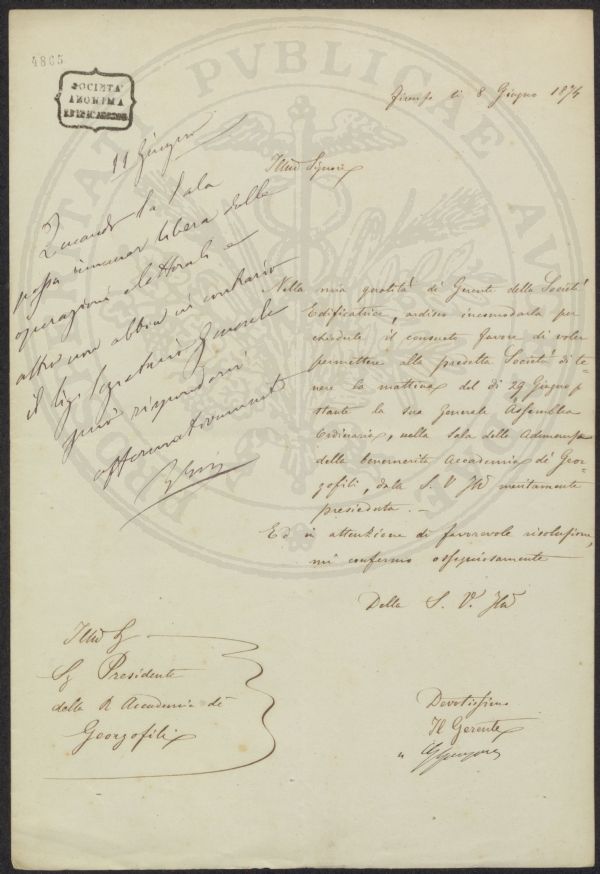 4865
SOCIETA'
ANONIMA
EDIFICATRICE
PROSPERITATI PVBLICAE AVGENDAE
Firenze li 8 Giugno 1874
11 Giugno
Quando la Sala
possa rimaner libera dalle
operazioni elettorali e
altro non abbia in contrario
il Sig. Segretario Generale
può rispondere
affermativamente
Illmo Signore
Nella mia qualità di Gerente della Società
Edificatrice, ardisco incomodarla per
chiederle il consueto favore di voler
permettere alla predetta Società di te=
nere la mattina del dì 29 Giugno p
stante la sua Generale Assemblea
Ordinaria, nella Sala delle Adunanze
della benemerita Accademia dei Geor=
gofili, dalla S. V. Illma meritamente
presieduta. —
Ed in attenzione di favorevole risoluzione,
mi confermo ossequiosamente
Della S. V. Illma
Illmo Sig
Sig Presidente
della R Accademia dei
Georgofili
Devotissimo
Il Gerente